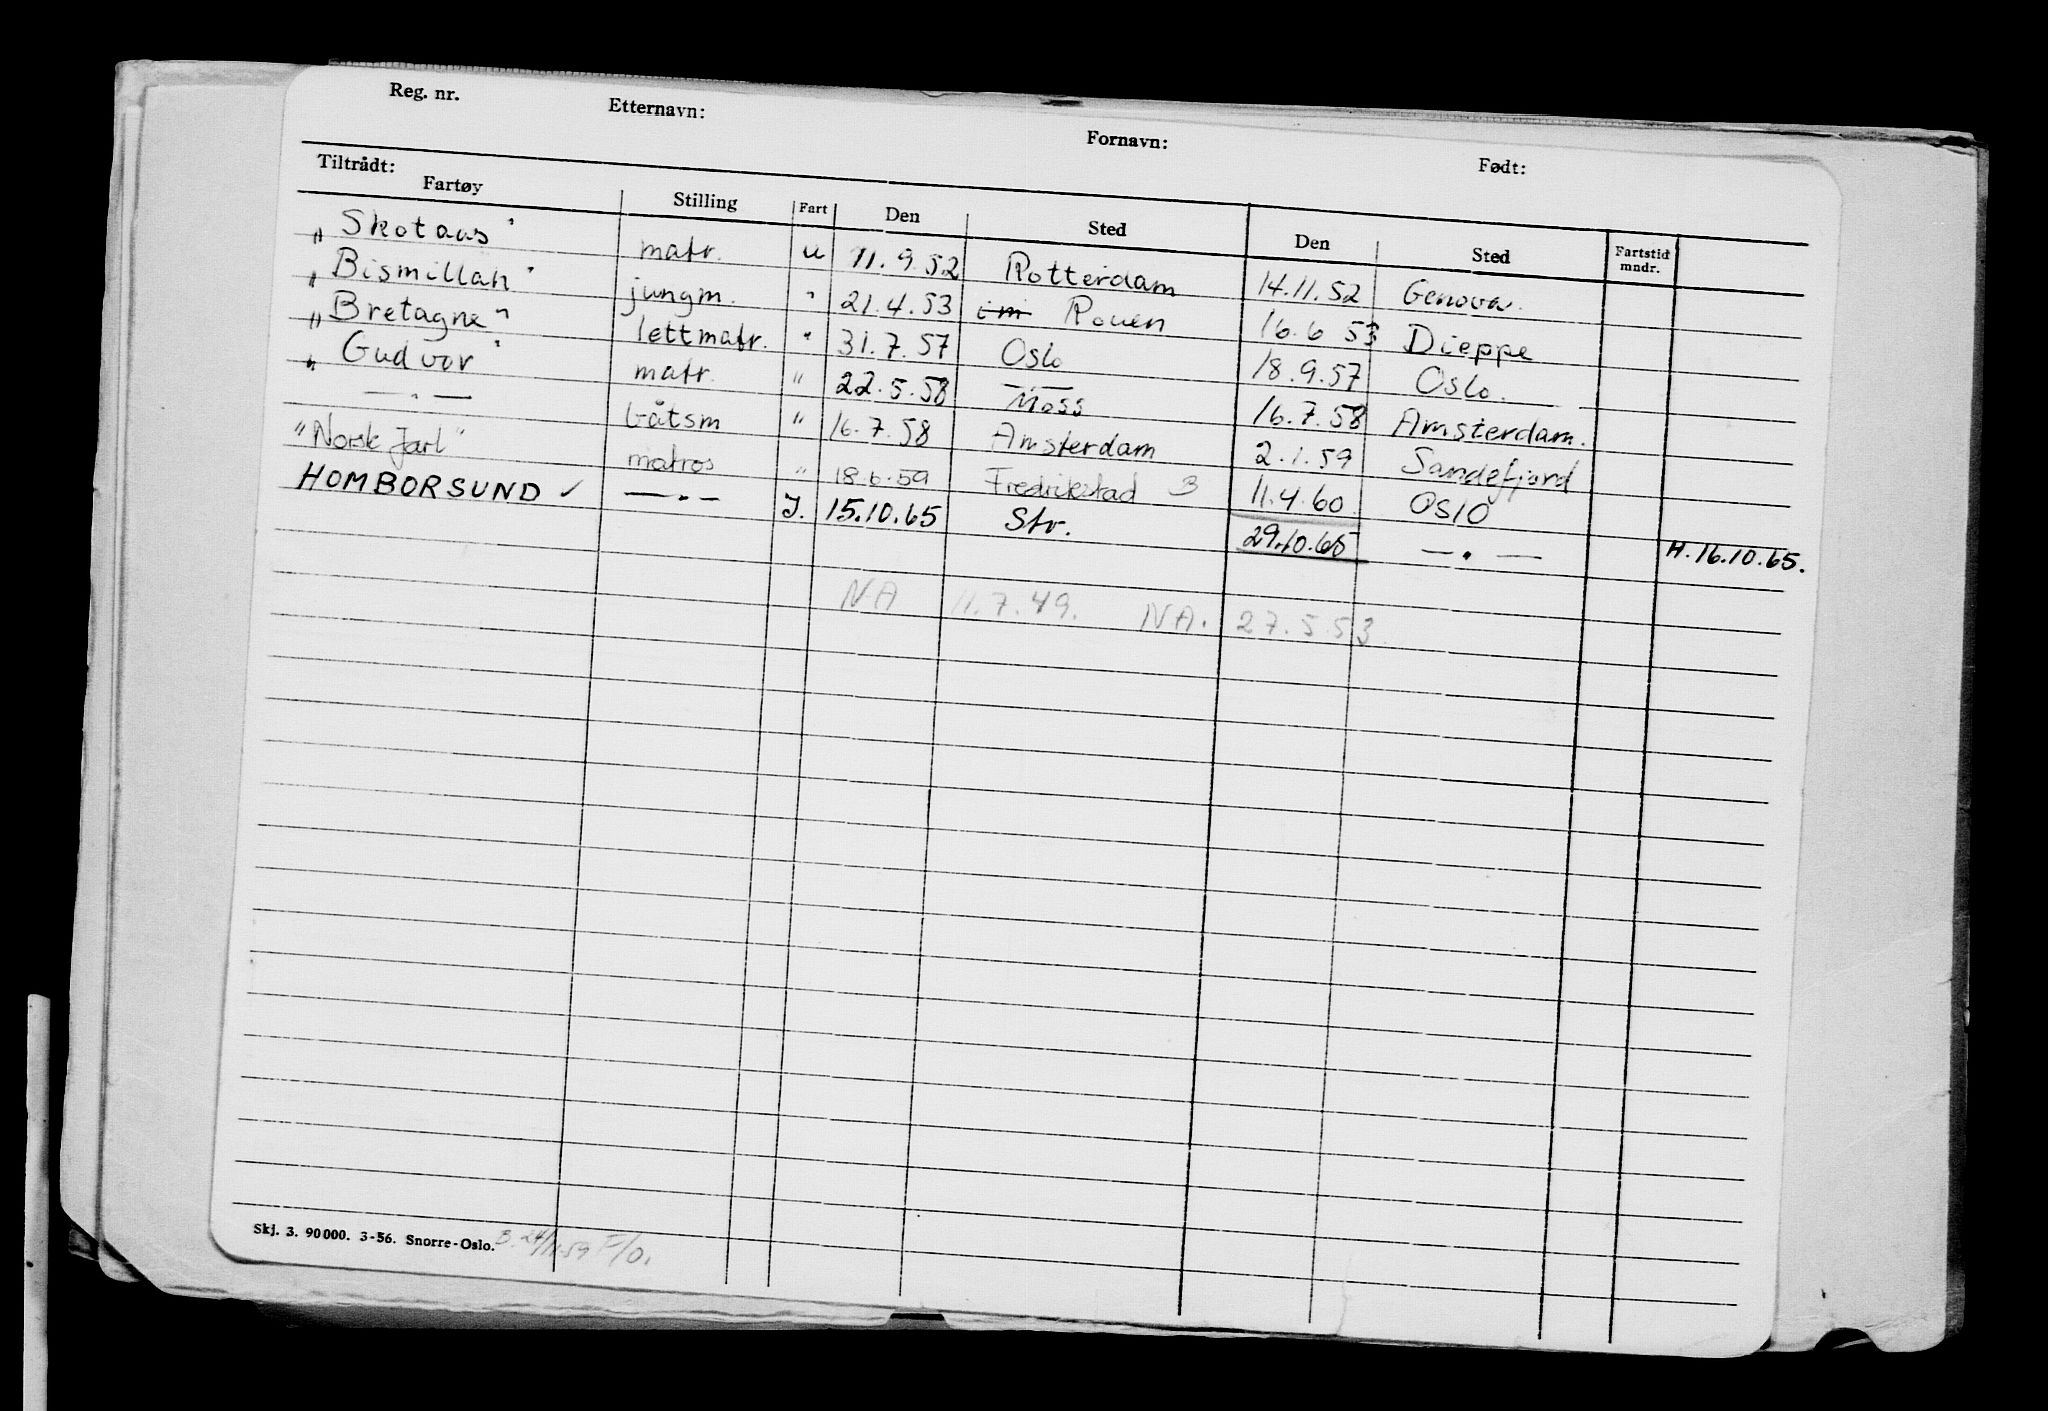 Reg. nr. Etternavn: Fornavn: Født:
Tiltrådt:
Fartøy Stilling Fart Den Sted Den Sted Fartstid mndr.
„ Skotaas " matr. u 11.9.52 Rotterdam 14.11.52 Genova.
„ Bismillah " jungm. " 21.4.53 Rouen 16.6 53 Dieppe
„ Bretagne " lettmatr. " 31.7.57 Oslo 18.9.57 Oslo.
„ Gudvor " matr. " 22.5.58 Moss 16.7.58 Amsterdam.
— " — båtsm " 16.7.58 Amsterdam 2.1.59 Sandefjord
"Norsk Jarl" matros " 18.6.59 Fredrikstad B 11.4.60 OSLO
HOMBORSUND ✓ — " — J. 15.10.65 Str. 29.10.65 — " — H.16.10.65.
NA 11.7.49. NA. 27.5.53.
Skj. 3. 90000. 3-56. Snorre-Oslo. B. 24/11-59 F/O.